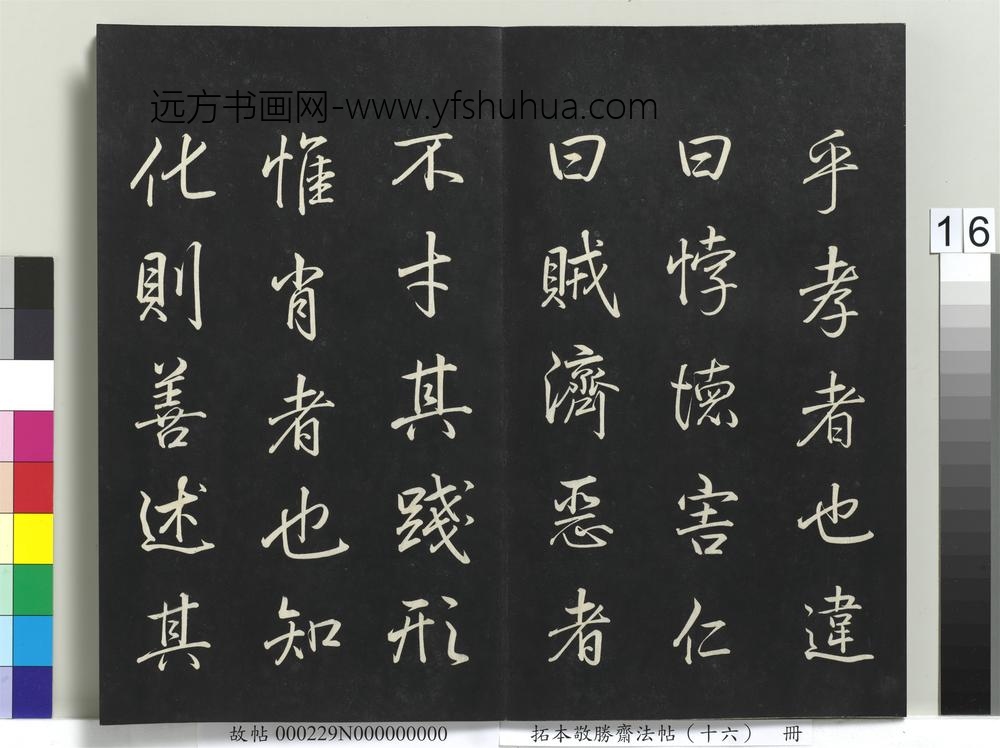 远方书画网-www.yfshuhua.com
乎孝者也違
曰悖德害仁
曰賊濟惡者
不才其踐形
惟肖者也知
化則善述其
16
故帖 000229N000000000
拓本敬勝齋法帖（十六） 冊